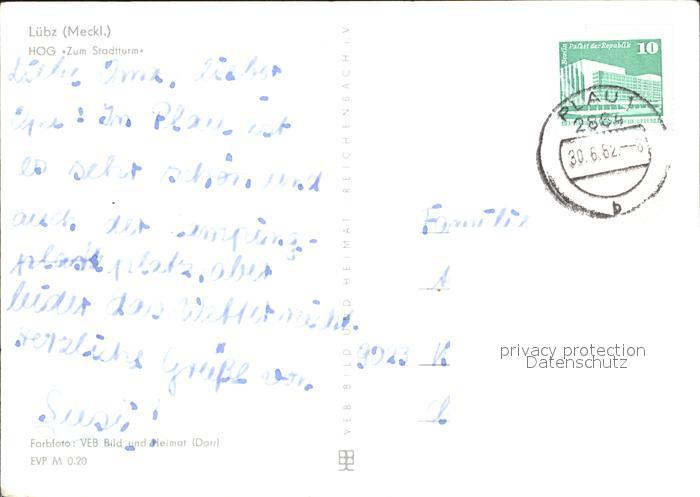 Lübz (Meckl.)
HOG »Zum Stadtturm«
Liebe Oma, lieber
Opa! In Plau ist
es sehr schön und
auch der Campingplatz, aber
leider das Wetter nicht.
Herzliche Grüße von
Susi!
Farbfoto: VEB Bild und Heimat (Darr)
EVP M 0.20
VEB BILD UND HEIMAT REICHENBACH i V
Berlin Palast der Republik 10
DDR
PLAU 1
2864
30.6.82.-8
b
Familie
A
9923 K
privacy protection
Datenschutz